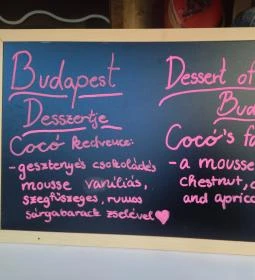 Budapest
Desszertje
Cocó kedvence:
-gesztenyés csokoládés
mousse vaníliás,
szegfűszeges, rumos
sárgabarack zselével
Dessert of
Bud
Cocó's fa
- a mousse
chestnut, c
and aprico